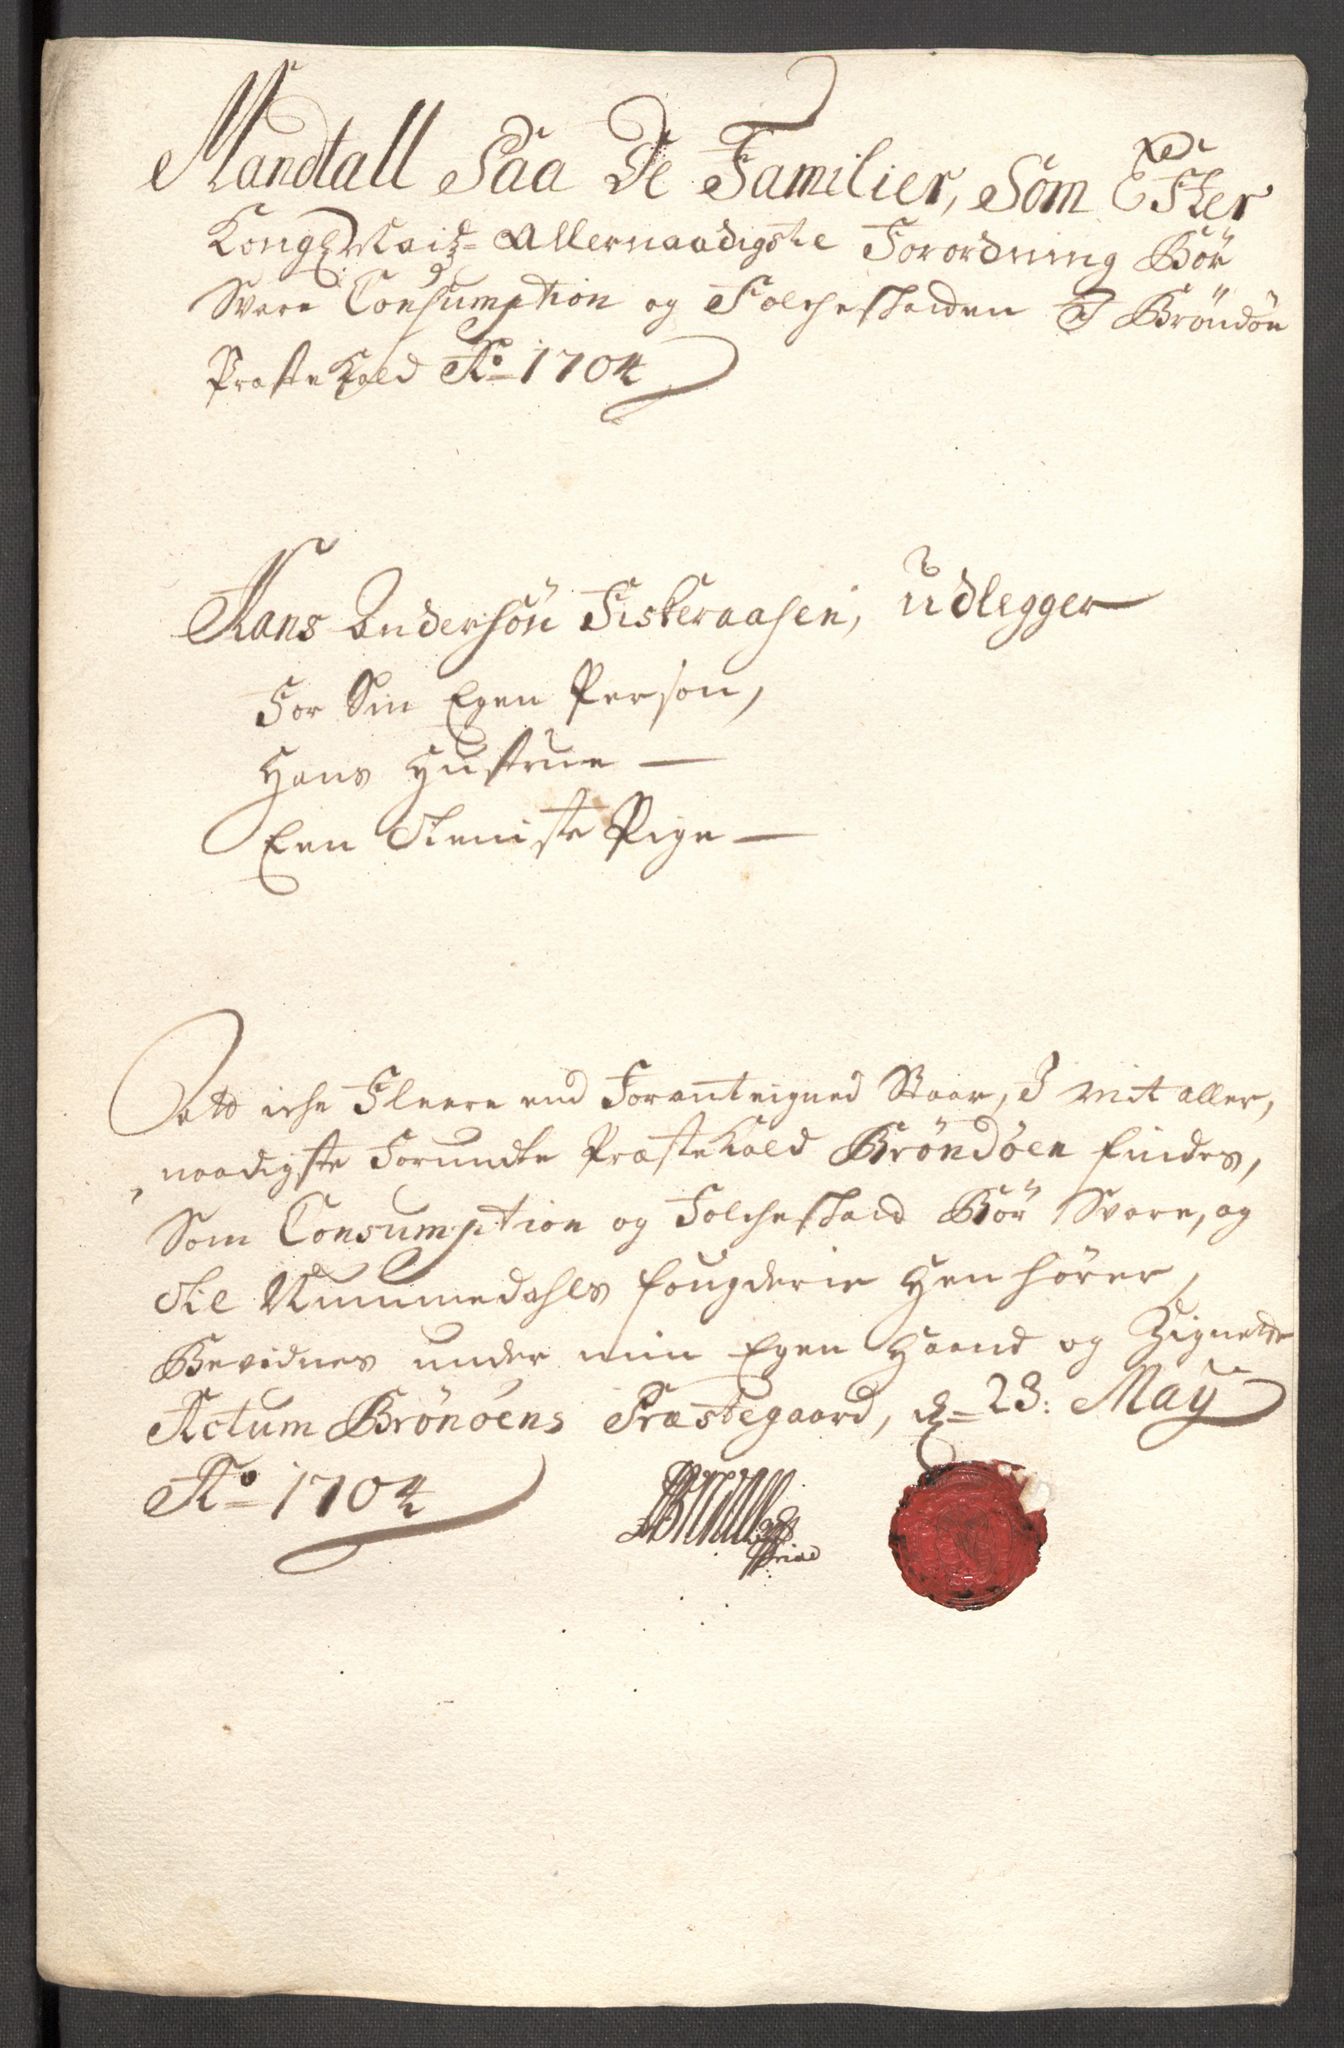 Mandtall Paa De Familier, Som Effter
Kongl Maitz Allernaadigste Forordning Bör
Svare Consumption og Folcheskatden I Bröndöe
Præste Kald Ao 1704
Hans Andersön Fiskeraasen, udlegger
For Sin Egen Person,
Hans Hustrue —
Een Tieniste Pige —
Att iche Fleere end Foranteigned Staar, I mit aller,
naadigste Forundte Præste Kald Bröndöen findes,
Som Consumption og Folcheskatd Bör Svare, og
til Nummedahls fougderie Henhörer,
Bevidnes under min Egen Haand og Zignette
Actum Brönöens Præstegaard, d= 23: May
Ao 1704